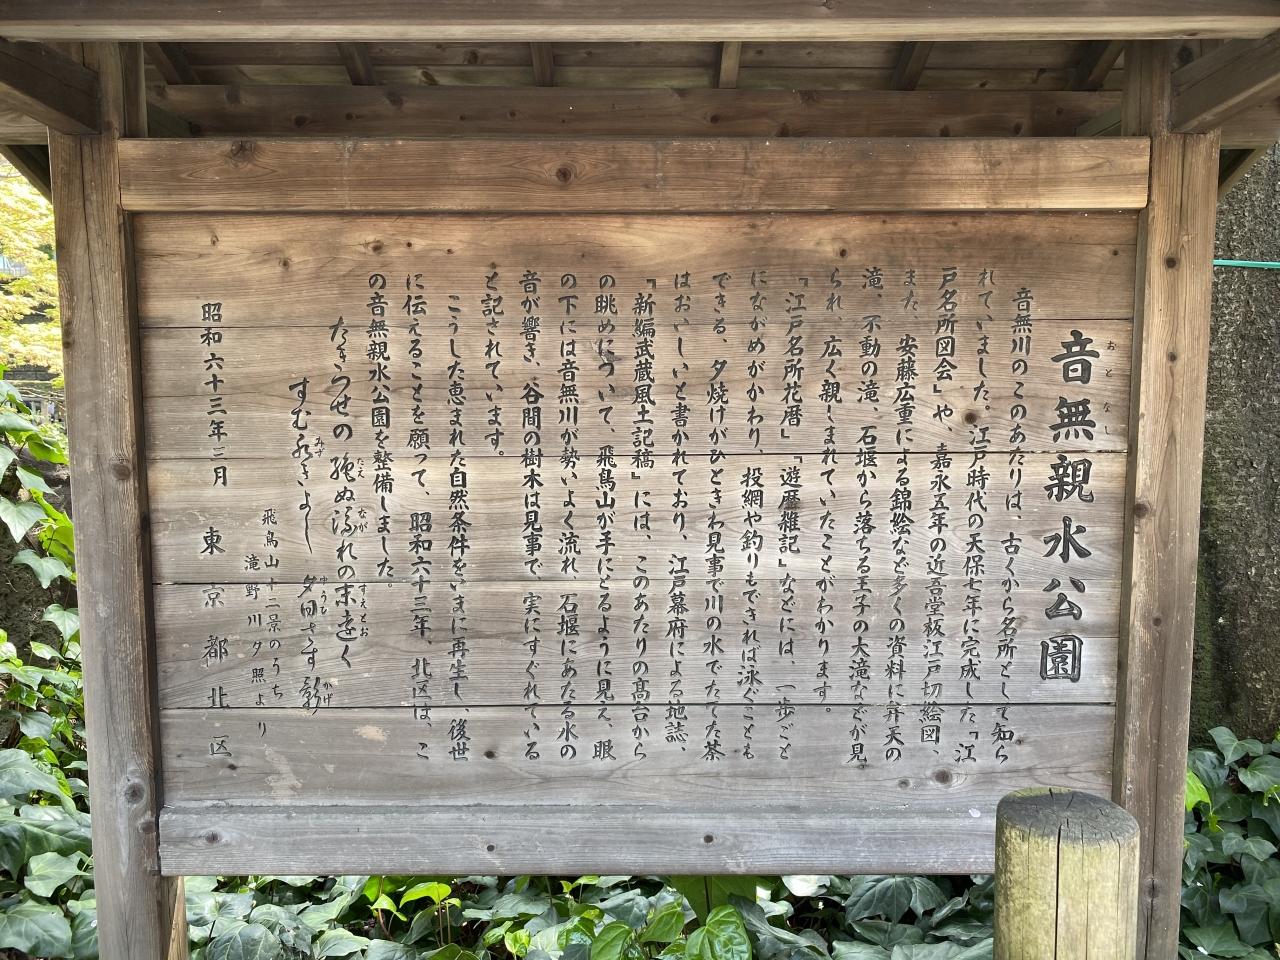 音無親水公園
おとなし
音無川のこのあたりは、古くから名所として知ら
れていました。江戸時代の天保七年に完成した「江
戸名所図会」や、嘉永五年の近吾堂板江戸切絵図、
また、安藤広重による錦絵など多くの資料に弁天の
滝、不動の滝、石堰から落ちる王子の大滝などが見
られ、広く親しまれていたことがわかります。
「江戸名所花暦」「遊歴雑記」などには、一歩ごと
にながめがかわり、投網や釣りもできれば泳ぐことも
できる、夕焼けがひときわ見事で川の水でたてた茶
はおいしいと書かれており、江戸幕府による地誌、
『新編武蔵風土記稿』には、このあたりの高台から
の眺めについて、飛鳥山が手にとるように見え、眼
の下には音無川が勢いよく流れ、石堰にあたる水の
音が響き、谷間の樹木は見事で、実にすぐれている
と記されています。
こうした恵まれた自然条件をいまに再生し、後世
に伝えることを願って、昭和六十三年、北区は、こ
の音無親水公園を整備しました。
たきらせの絶ぬ流れの末遠く
たえ なが すえとお
すむ水きよし夕日さす影
みず ゆうひ かげ
飛鳥山十二景のうち
滝野川夕照より
昭和六十三年三月 東京都北区